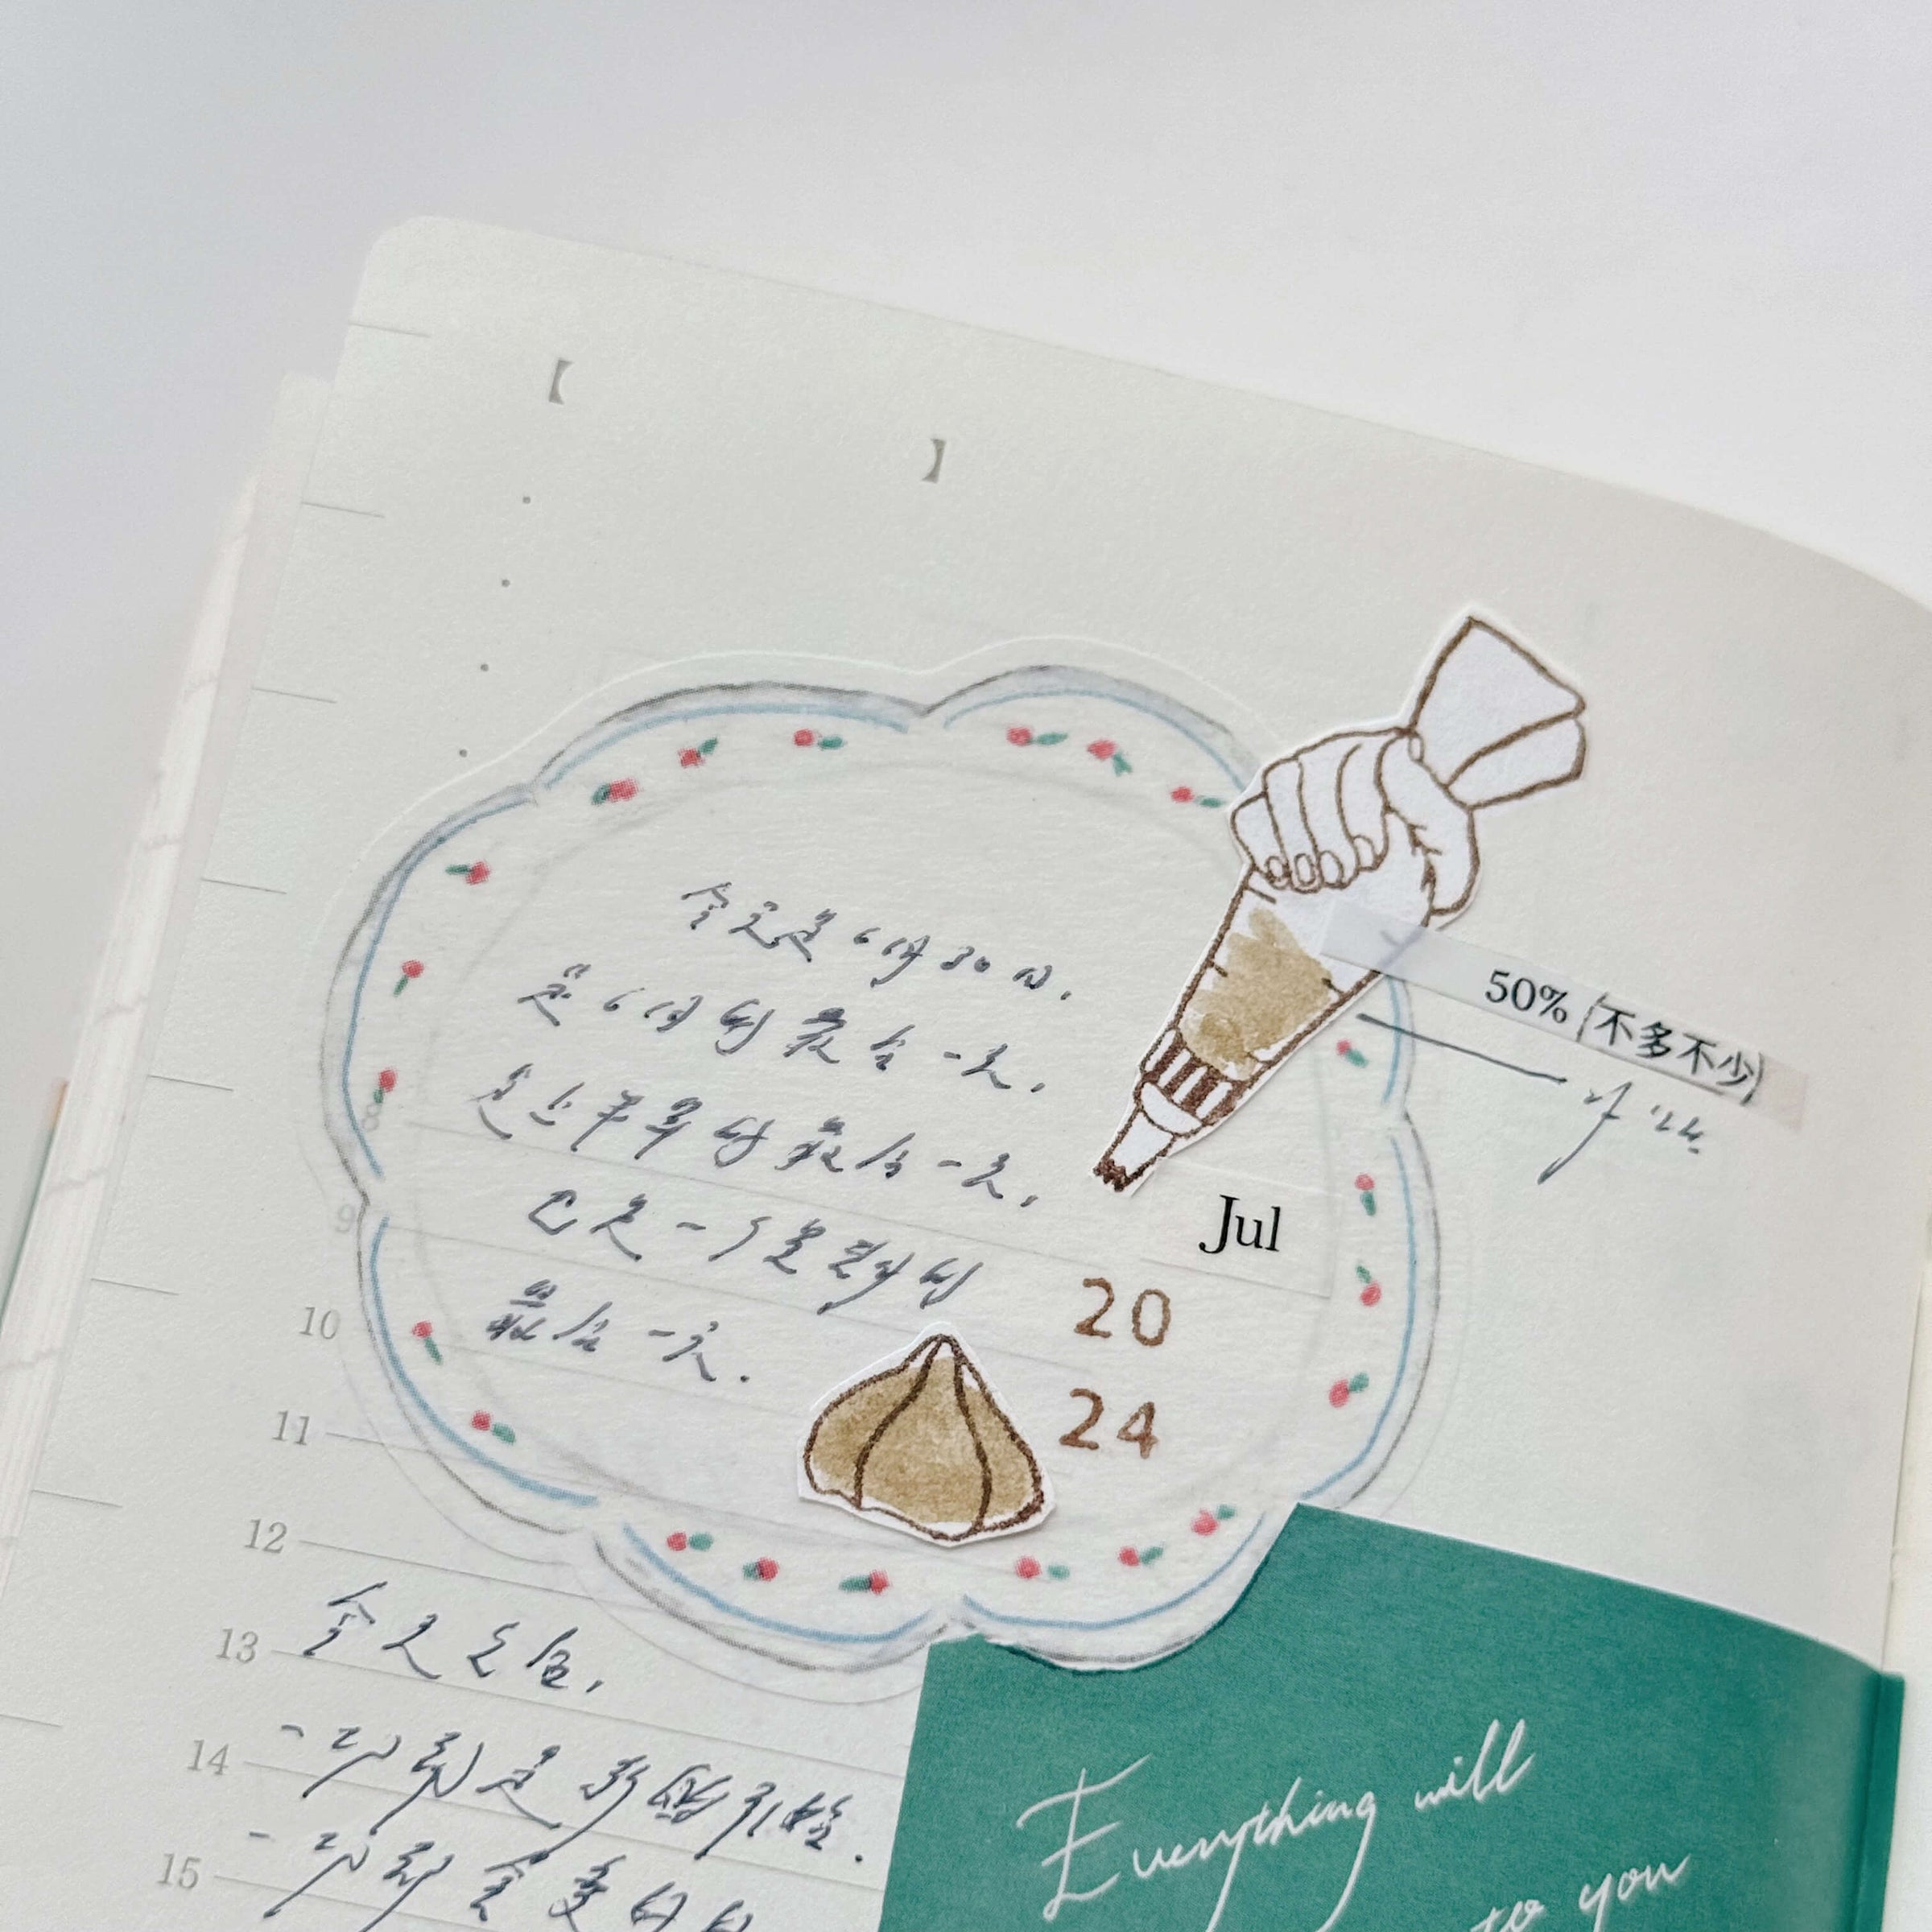 【 】
今天是6月30日，
是6月的最后一天，
是上半年的最后一天，
也是一个星期的
最后一天.
50% (不多不少)
of '24.
Jul
20
24
8
9
10
11
12
今天之后，
13
一切都是新的开始.
14
一切都会变好的
15
Everything will
to you